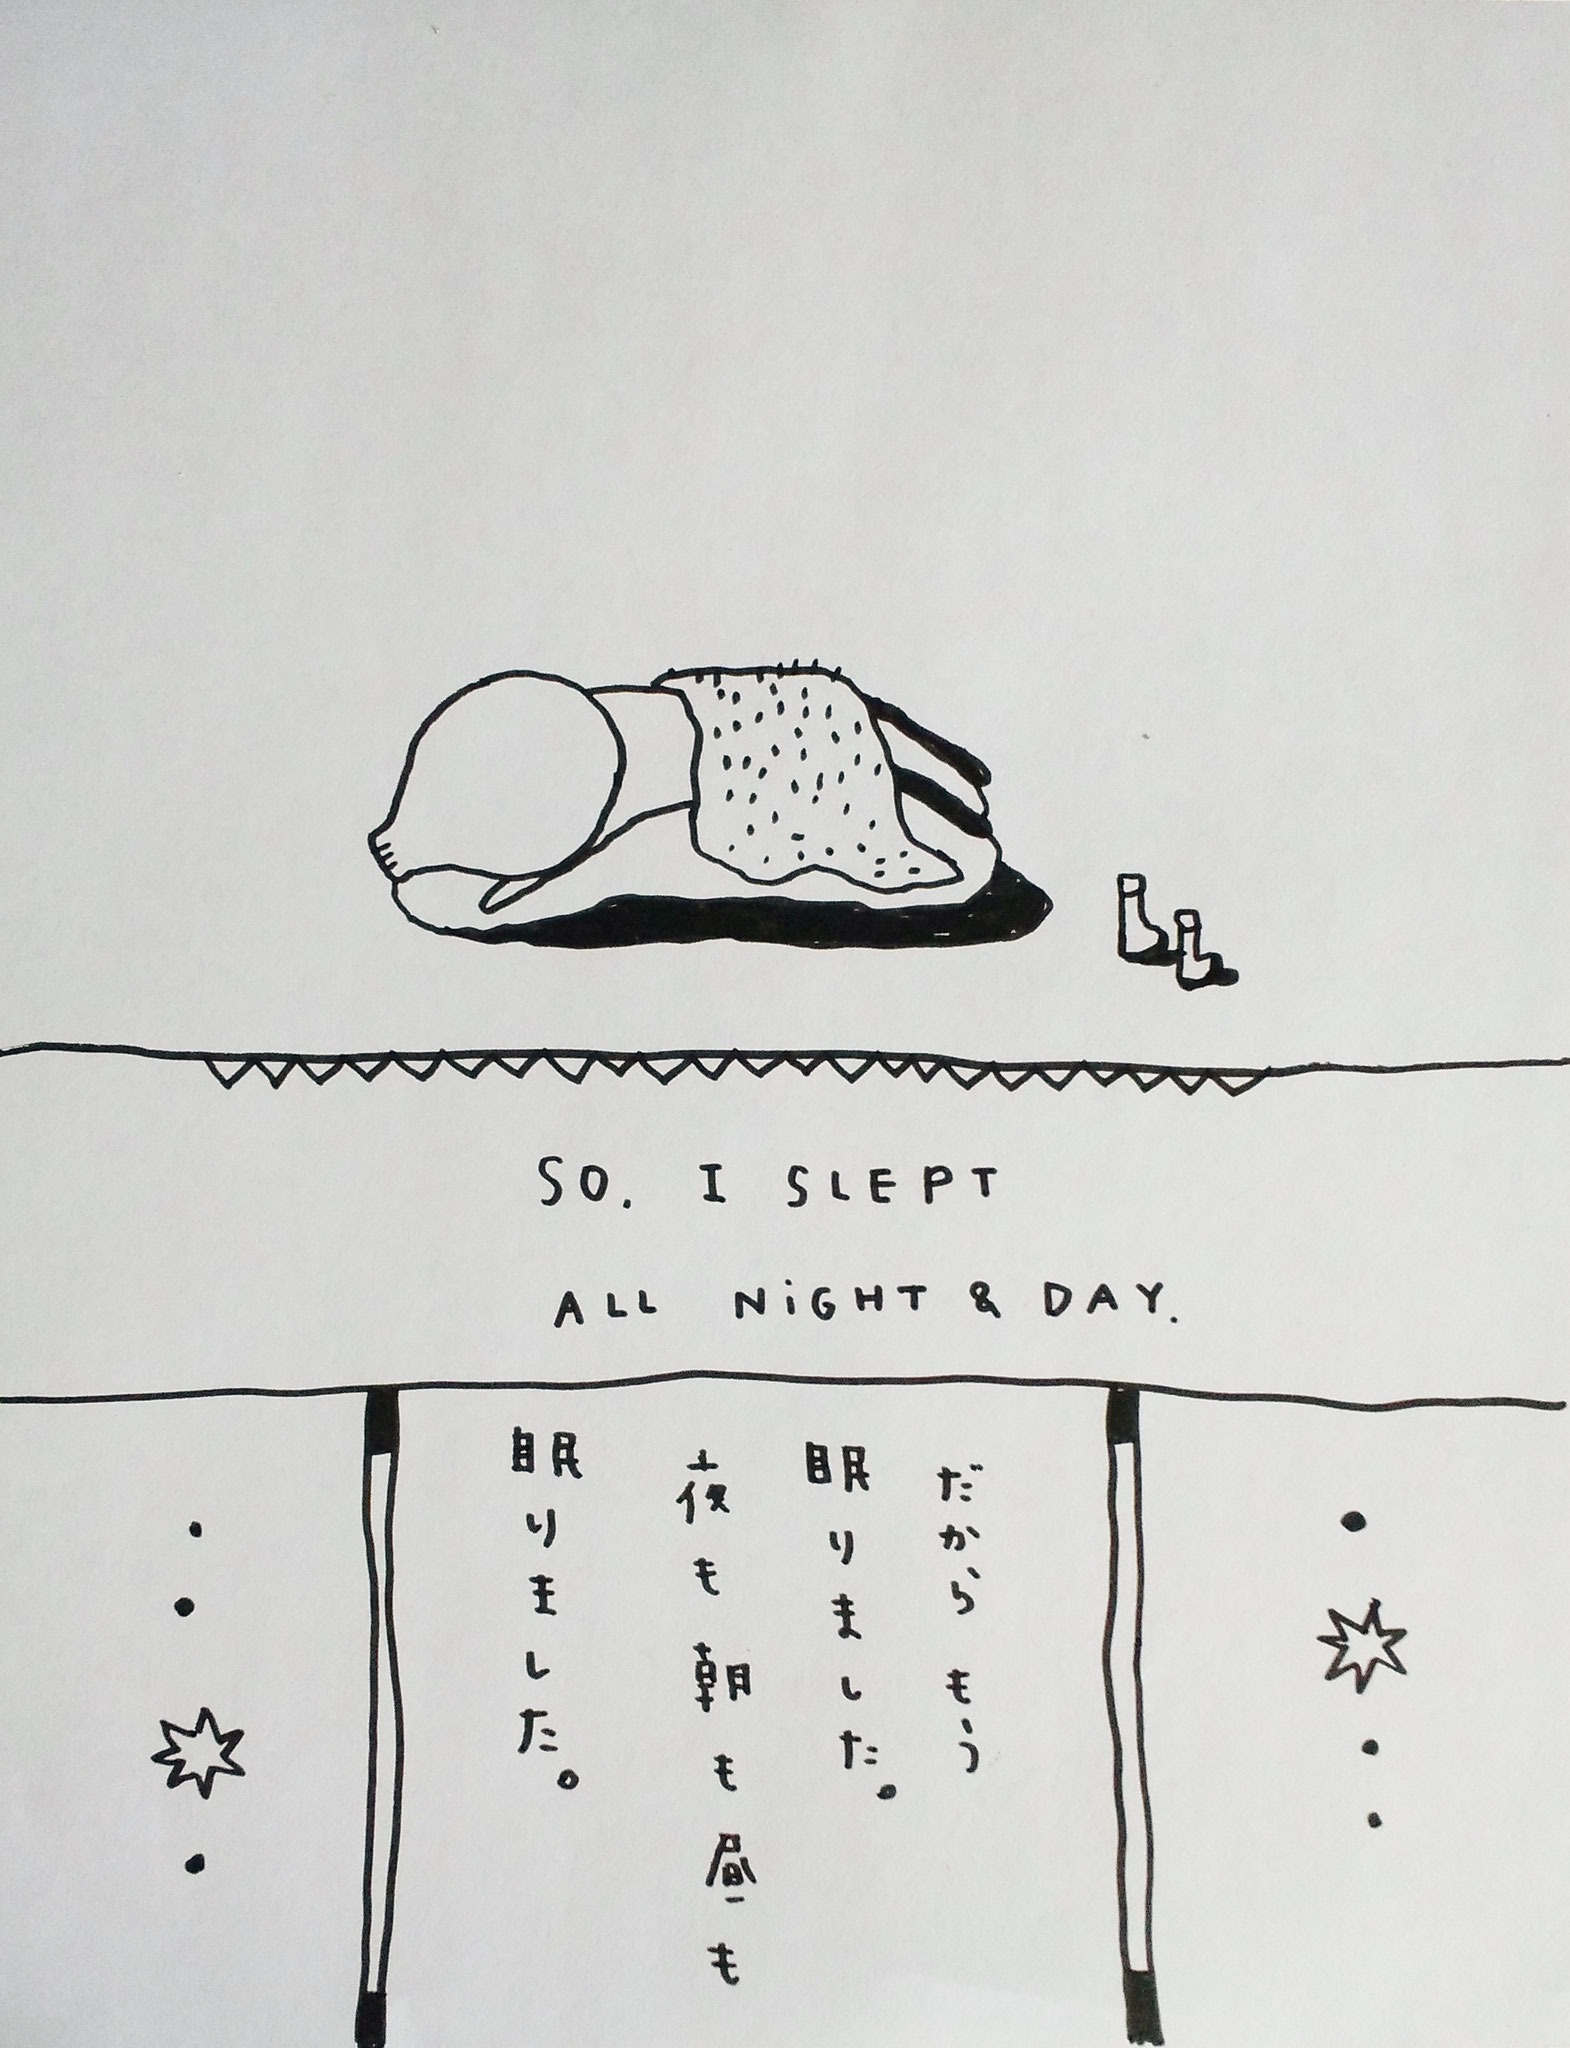 SO. I SLEPT
ALL NiGHT & DAY.
だから もう
眠りました。
夜も朝も昼も
眠りました。